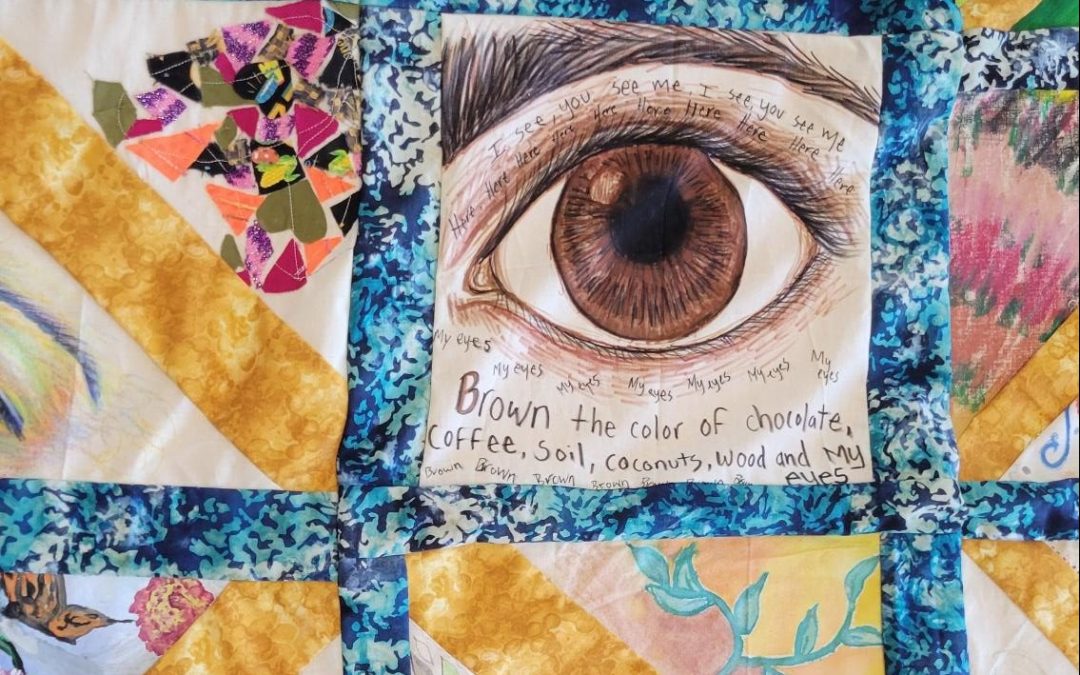 I see, you see me, I see, you see me
Here Here Here Here Here Here Here Here Here Here
My eyes My eyes My eyes My eyes My eyes My eyes My eyes
Brown the color of chocolate,
coffee, soil, coconuts, wood and My
eyes
Brown Brown Brown Brown Brown Brown